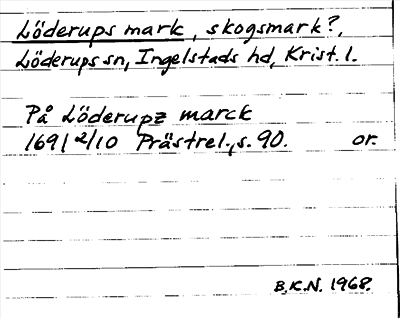 Löderups mark, skogsmark?,
Löderups sn, Ingelstads hd, Krist. l.
På Löderupz marck
1691 2/10 Prästrel., s. 90. or.
B.K.N. 1968.